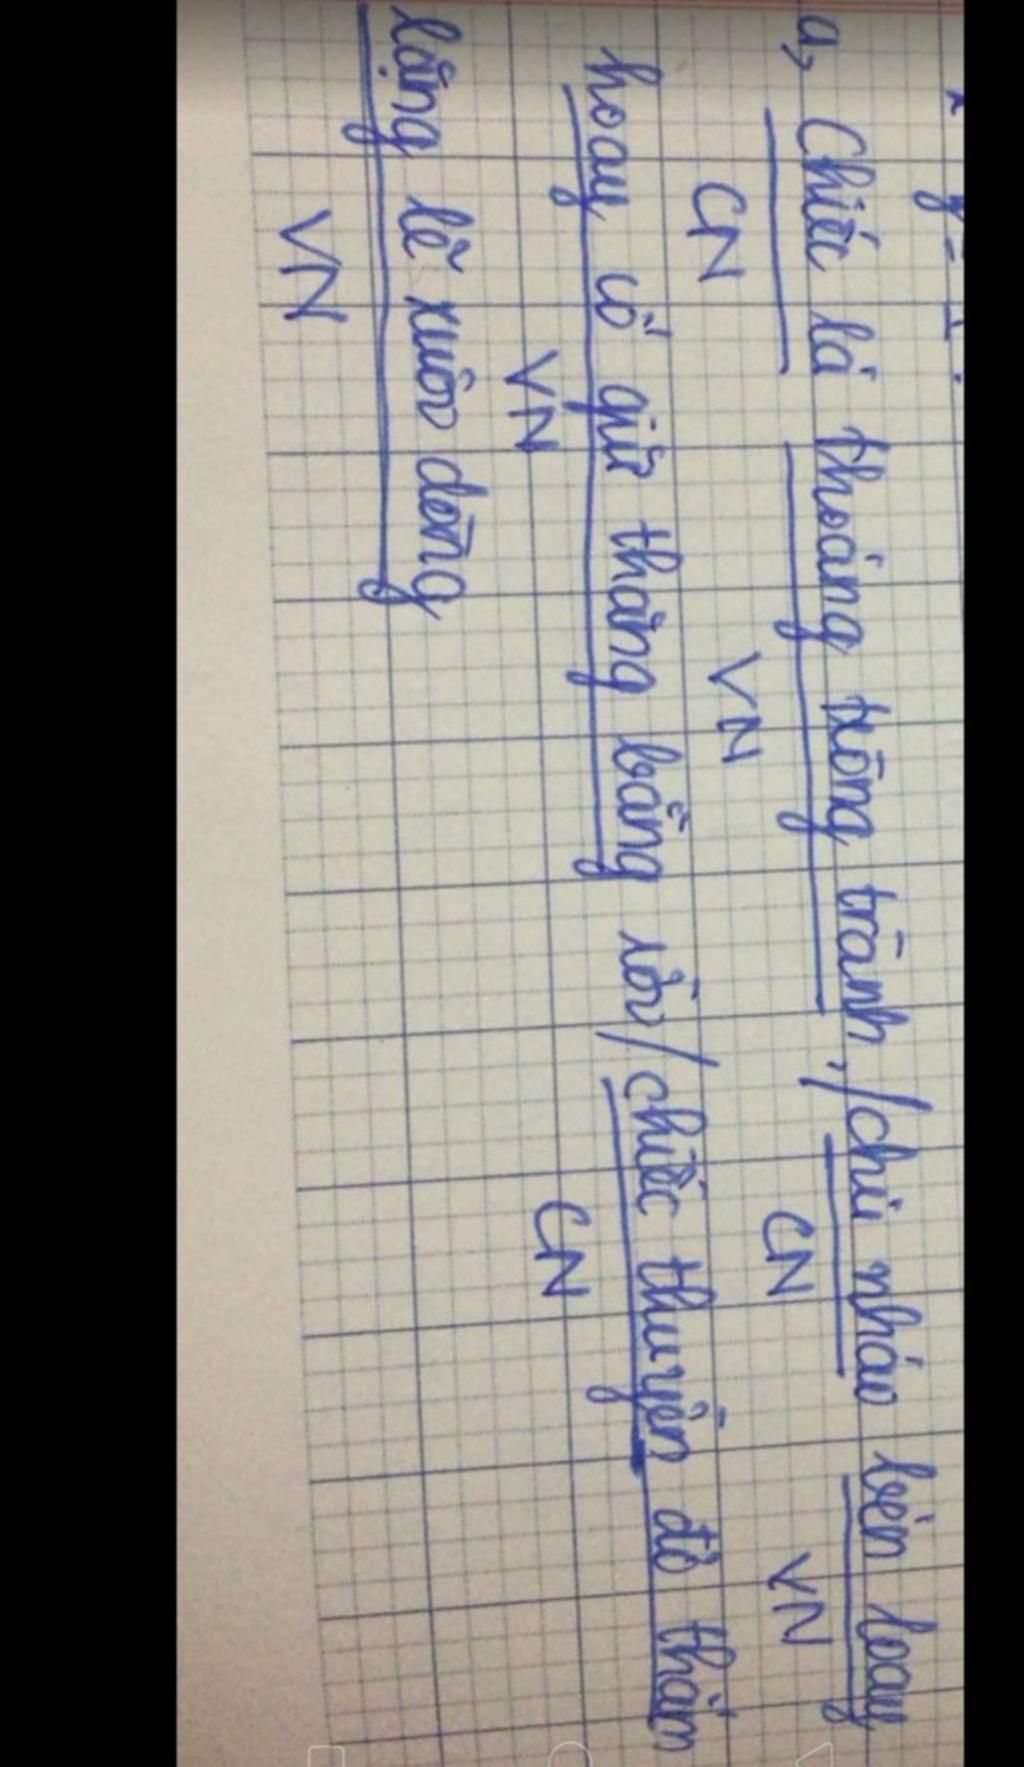 a, Chiếc lá thoáng tròng trành, / chú nhái bén loay
CN VN CN VN
hoay cố giữ thăng bằng rồi / chiếc thuyền đỏ thắm
VN CN
lặng lẽ xuôi dòng
VN